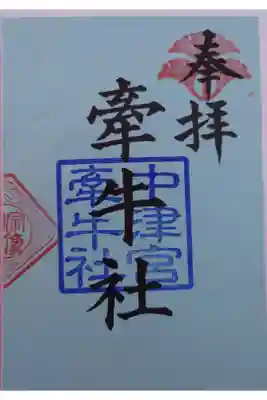 奉拝
牽牛社
中津宮
牽牛社
宗像